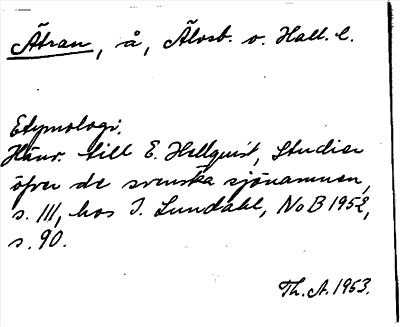 Ätran, å, Älvsb. o. Hall. l.
Etymologi.
Hänv. till E. Hellquist, Studier
öfver de svenska sjönamnen,
s. 111, hos I. Lundahl, NoB 1952,
s. 90.
Th. A. 1953.